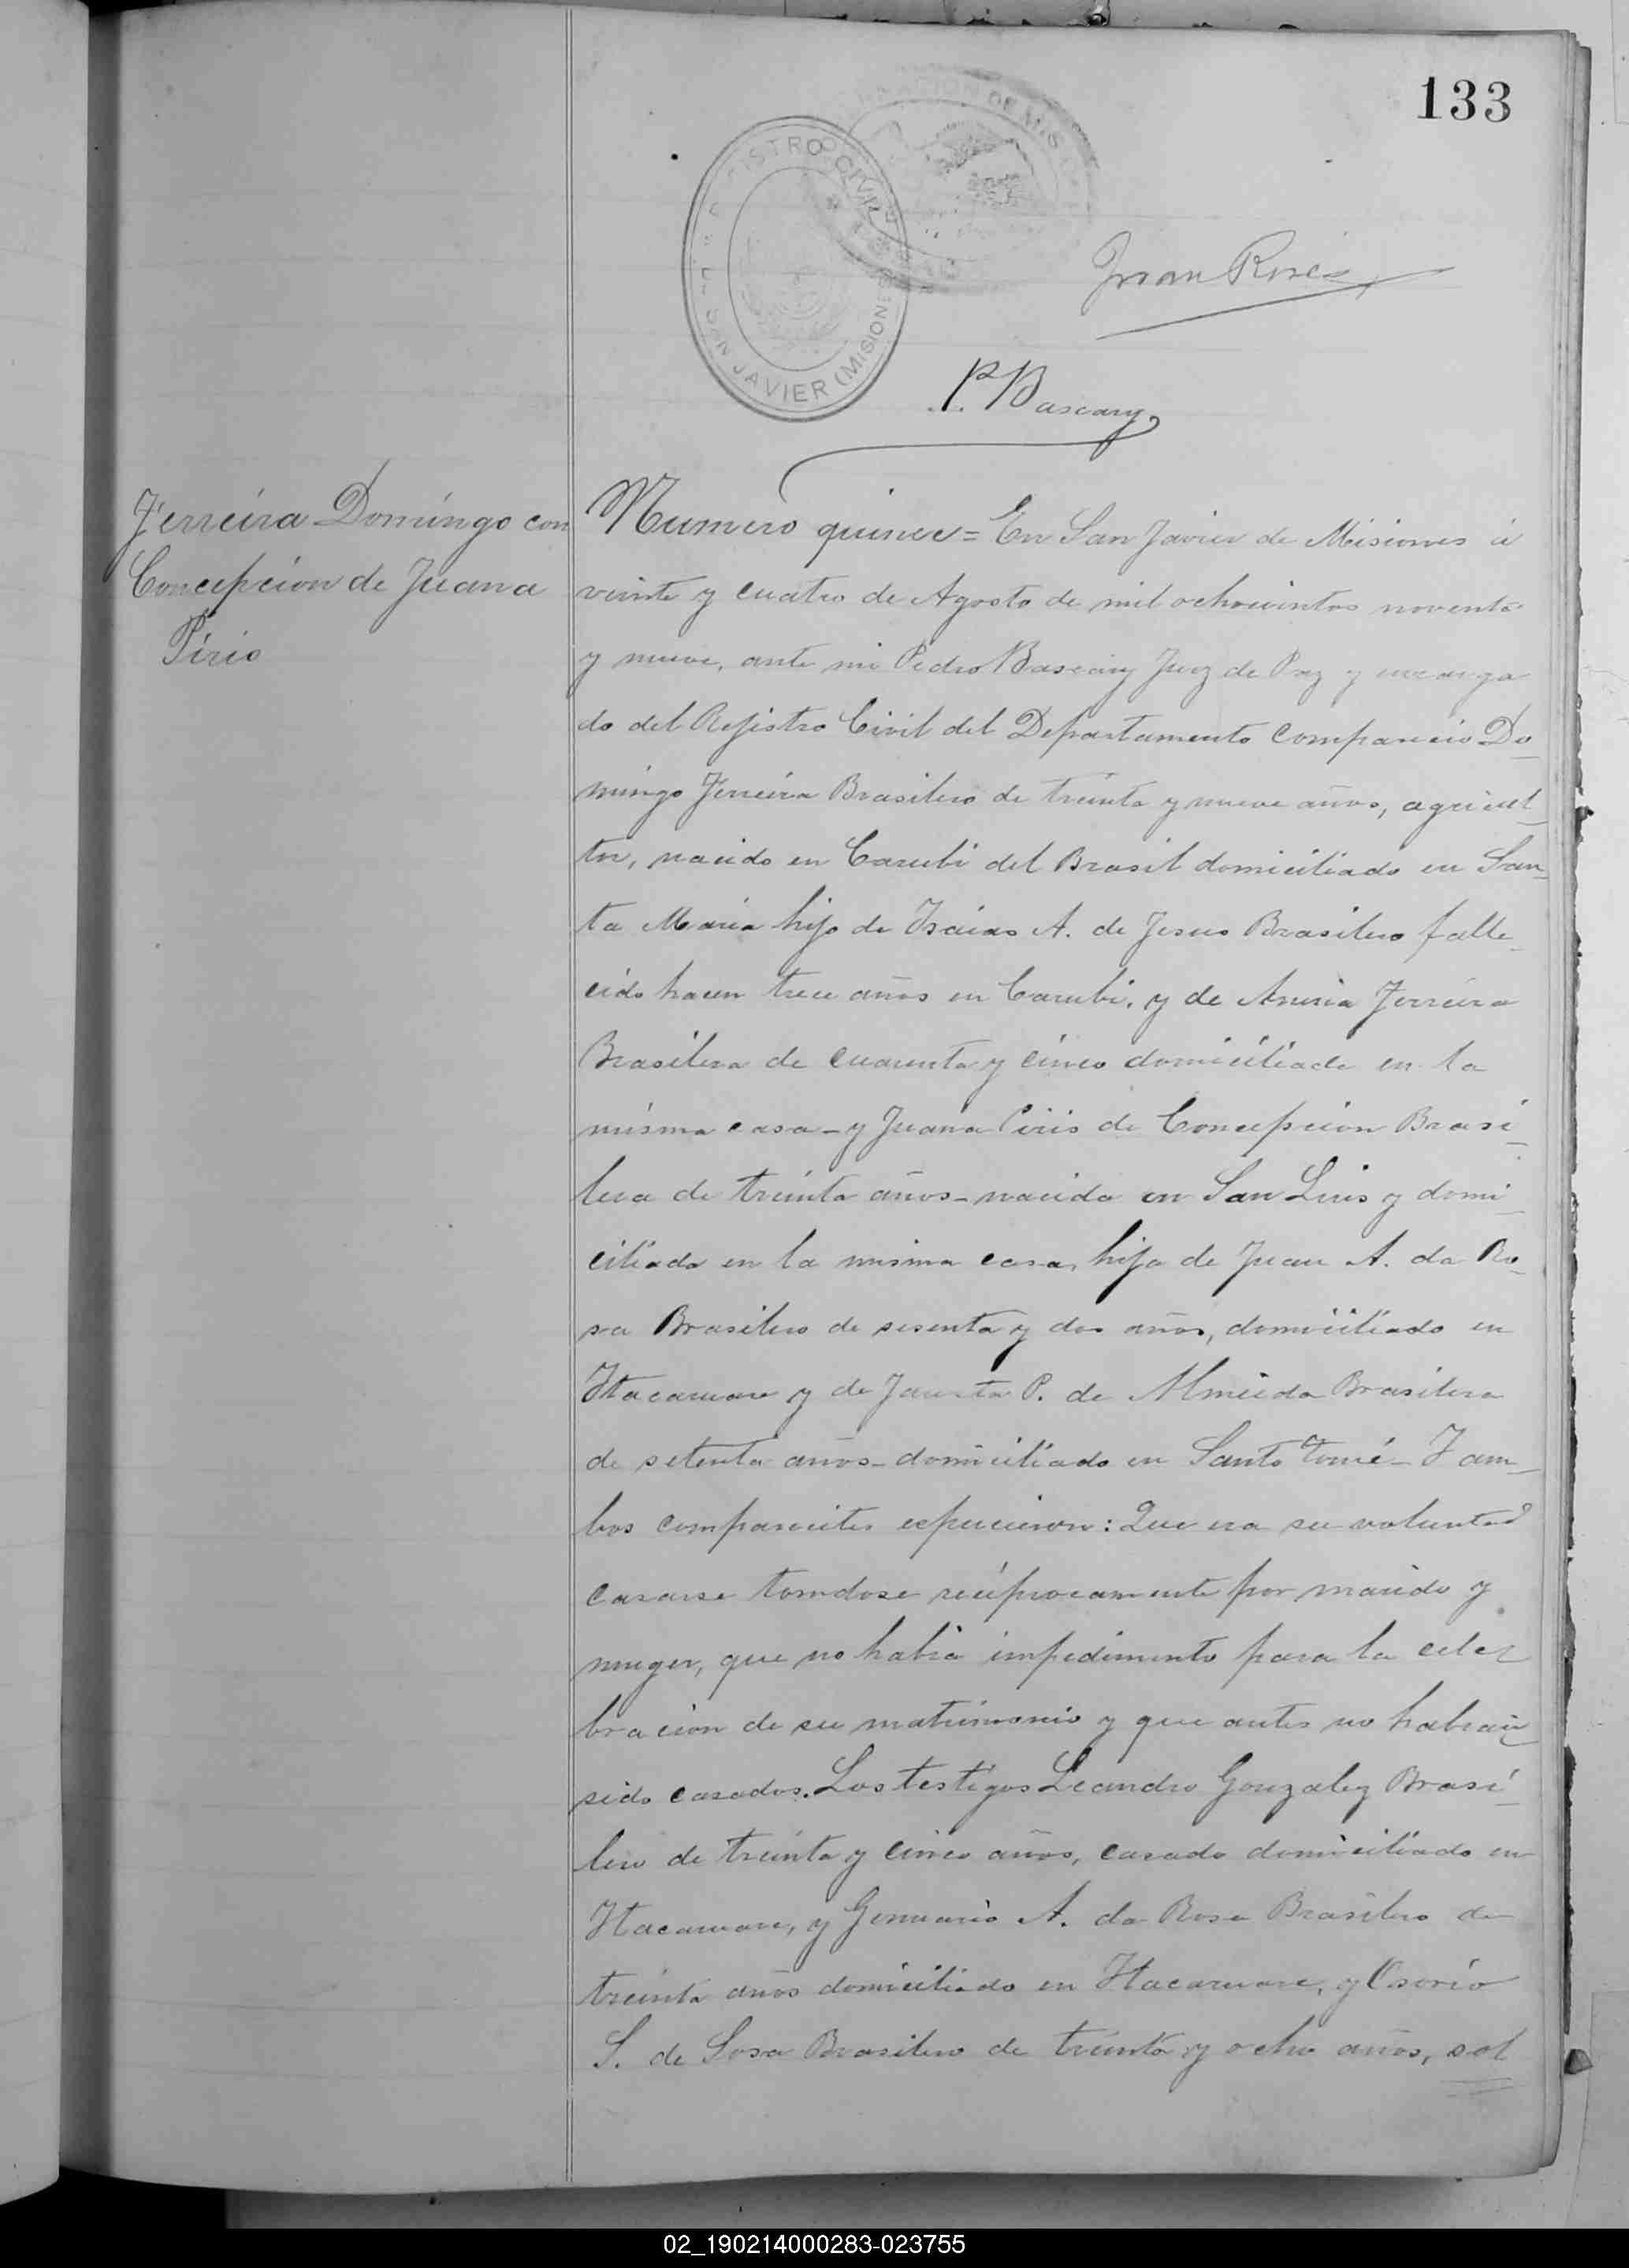 133
REGISTRO CIVIL
SAN JAVIER (MISIONES
DE MIS
Juan
P. Bascary
Ferreira Domingo con
Concepcion de Juana
Pirio
Numero quince = En San Javier de Misiones á
veinte y cuatro de Agosto de mil ochocientos noventa
y nueve, ante mi Pedro Bascary Juez de Paz y encarga
do del Rejistro Civil del Departamento comparecio Do
mingo Ferreira Brasilero de treinta y nueve años, agricul
tor, nacido en Carubi del Brasil domiciliado en San
ta Maria hijo de Isaias A. de Jesus Brasilero falle
cido hacen trece años en Carubi, y de Ferreira
Brasilera de cuarenta y cinco domiciliada en la
misma casa - y Juana Piris de Concepcion Brasi
lera de treinta años - nacida en San Luis y domi
ciliada en la misma casa, hija de Juan A. da Ro
sa Brasilero de sesenta y dos años, domiciliado en
Itacaruare y de P. de Almeida Brasilera
de setenta años - domiciliado en Santo Tomé - I am
bos comparecites : Que era su voluntad
casarse tomdose reciprocamente por marido y
muger, que no habia impedimento para la cele
bracion de su matrimonio y que antes no habian
sido casados. Los testigos Leandro Gonzalez Brasi
lero de treinta y cinco años, casado domiciliado en
Itacaruare, y Genuario A. da Rosa Brasilero de
treinta años domiciliado en Itacaruare, y Osorio
S. de Sosa Brasilero de treinta y ocho años, sol
02_190214000283-023755